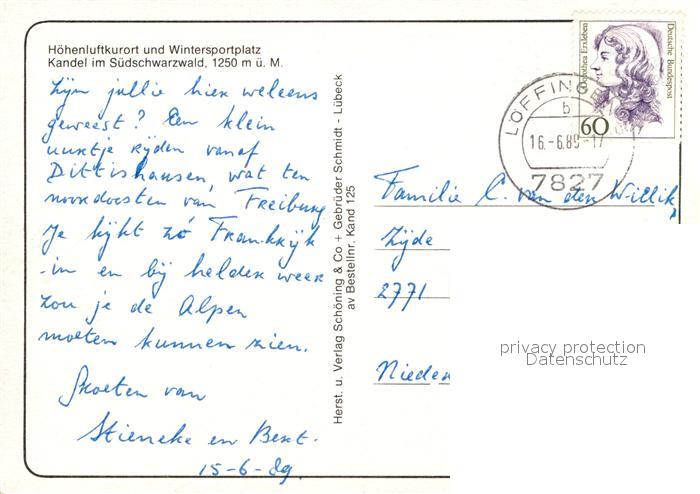 Höhenluftkurort und Wintersportplatz
Kandel im Südschwarzwald, 1250 m ü. M.
Zijn jullie hier weleens
geweest? Een klein
uurtje rijden vanaf
Dittishausen, wat ten
noordoosten van Freiburg
Je kijkt zó Frankrijk
-in en bij helder weer
zou je de Alpen
moeten kunnen zien.
Groeten van
Stieneke en Bert.
15-6-89.
Herst. u. Verlag Schöning & Co + Gebrüder Schmidt - Lübeck
av Bestellnr. Kand 125
Dorothea Erxleben
Deutsche Bundespost
60
LÖFFINGEN
b
16.-6.89-17
7827
Familie C. van den Willik,
Zijde
2771
Nieder
privacy protection
Datenschutz